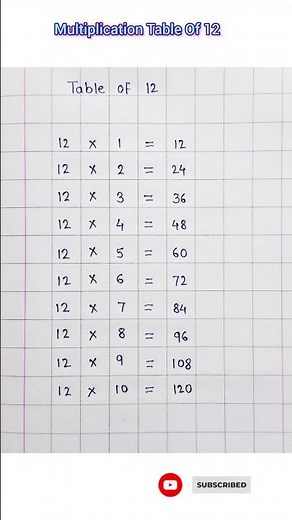 Multiplication Table Of 12
Table of 12
12 × 1 = 12
12 × 2 = 24
12 × 3 = 36
12 × 4 = 48
12 × 5 = 60
12 × 6 = 72
12 × 7 = 84
12 × 8 = 96
12 × 9 = 108
12 × 10 = 120
SUBSCRIBED